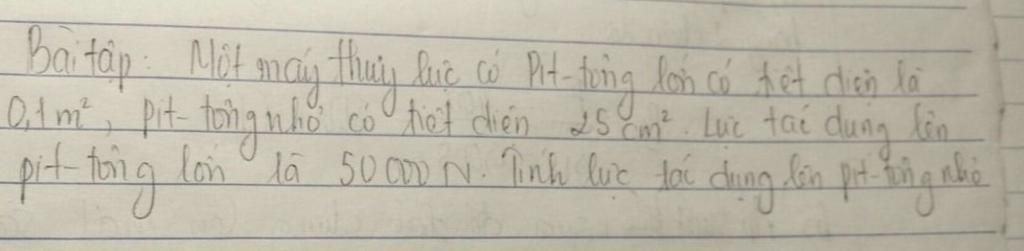 Bài tập: Một máy thuỷ lực có Pit-tông lớn có tiết diện là
0,1m², pit-tông nhỏ có tiết diện 25 cm². Lực tác dụng lên
pit-tông lớn là 50000 N. Tính lực tác dụng lên pit-tông nhỏ